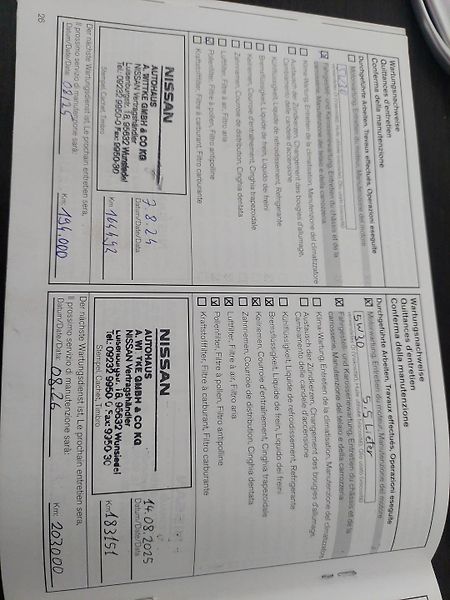 Wartungsnachweise
Quittances d'entretien
Conferma della manutenzione
Durchgeführte Arbeiten, Travaux effectués, Operazioni eseguite
Motorwartung, Entretien du moteur, Manutenzione del motore
5W30
Fahrgestell und Karosseriewartung, Entretien du châssis et de la
carrosserie, Manutenzione del telaio e della carrozzeria
Klima Wartung, Entretien de la climatisation, Manutenzione del climatizzatore
Austausch der Zündkerzen, Changement des bougies d'allumage,
Cambiamento delle candele d'accensione
Kühlflüssigkeit, Liquide de refroidissement, Refrigerante
Bremsflüssigkeit, Liquide de frein, Liquido dei freini
Keilriemen, Courroie d'entraînement, Cinghia trapezoidale
Zahnriemen, Courroie de distribution, Cinghia dentata
Luftfilter, Filtre à air, Filtro aria
Pollenfilter, Filtre à pollen, Filtro antipolline
Kraftstofffilter, Filtre à carburant, Filtro carburante
NISSAN
AUTOHAUS
A. WITTKE GMBH & CO KG
NISSAN Vertragshändler
Luisenburgstr. 18 95632 Wunsiedel
Tel. 09232 9950-0 Fax: 9950-30
Stempel, Cachet, Timbro
7.8.24
Datum/Date/Data
Km: 164192
Der nächste Wartungsdienst ist, Le prochain entretien sera,
Il prossimo servizio di manutenzione sarà:
Datum/Date/Data: 08/25
Km: 194.000
26
Wartungsnachweise
Quittances d'entretien
Conferma della manutenzione
Durchgeführte Arbeiten, Travaux effectués, Operazioni eseguite
Motorwartung, Entretien du moteur, Manutenzione del motore
5W30 5,5 Liter
Fahrgestell und Karosseriewartung, Entretien du châssis et de la
carrosserie, Manutenzione del telaio e della carrozzeria
Klima Wartung, Entretien de la climatisation, Manutenzione del climatizzatore
Austausch der Zündkerzen, Changement des bougies d'allumage,
Cambiamento delle candele d'accensione
Kühlflüssigkeit, Liquide de refroidissement, Refrigerante
Bremsflüssigkeit, Liquide de frein, Liquido dei freini
Keilriemen, Courroie d'entraînement, Cinghia trapezoidale
Zahnriemen, Courroie de distribution, Cinghia dentata
Luftfilter, Filtre à air, Filtro aria
Pollenfilter, Filtre à pollen, Filtro antipolline
Kraftstofffilter, Filtre à carburant, Filtro carburante
NISSAN
AUTOHAUS
A. WITTKE GMBH & CO KG
NISSAN Vertragshändler
Luisenburgstr. 18 95632 Wunsiedel
Tel. 09232 9950 0 Fax: 9950-30
Stempel, Cachet, Timbro
14.08.2025
Datum/Date/Data
Km: 183151
Der nächste Wartungsdienst ist, Le prochain entretien sera,
Il prossimo servizio di manutenzione sarà:
Datum/Date/Data: 08.26
Km: 203000